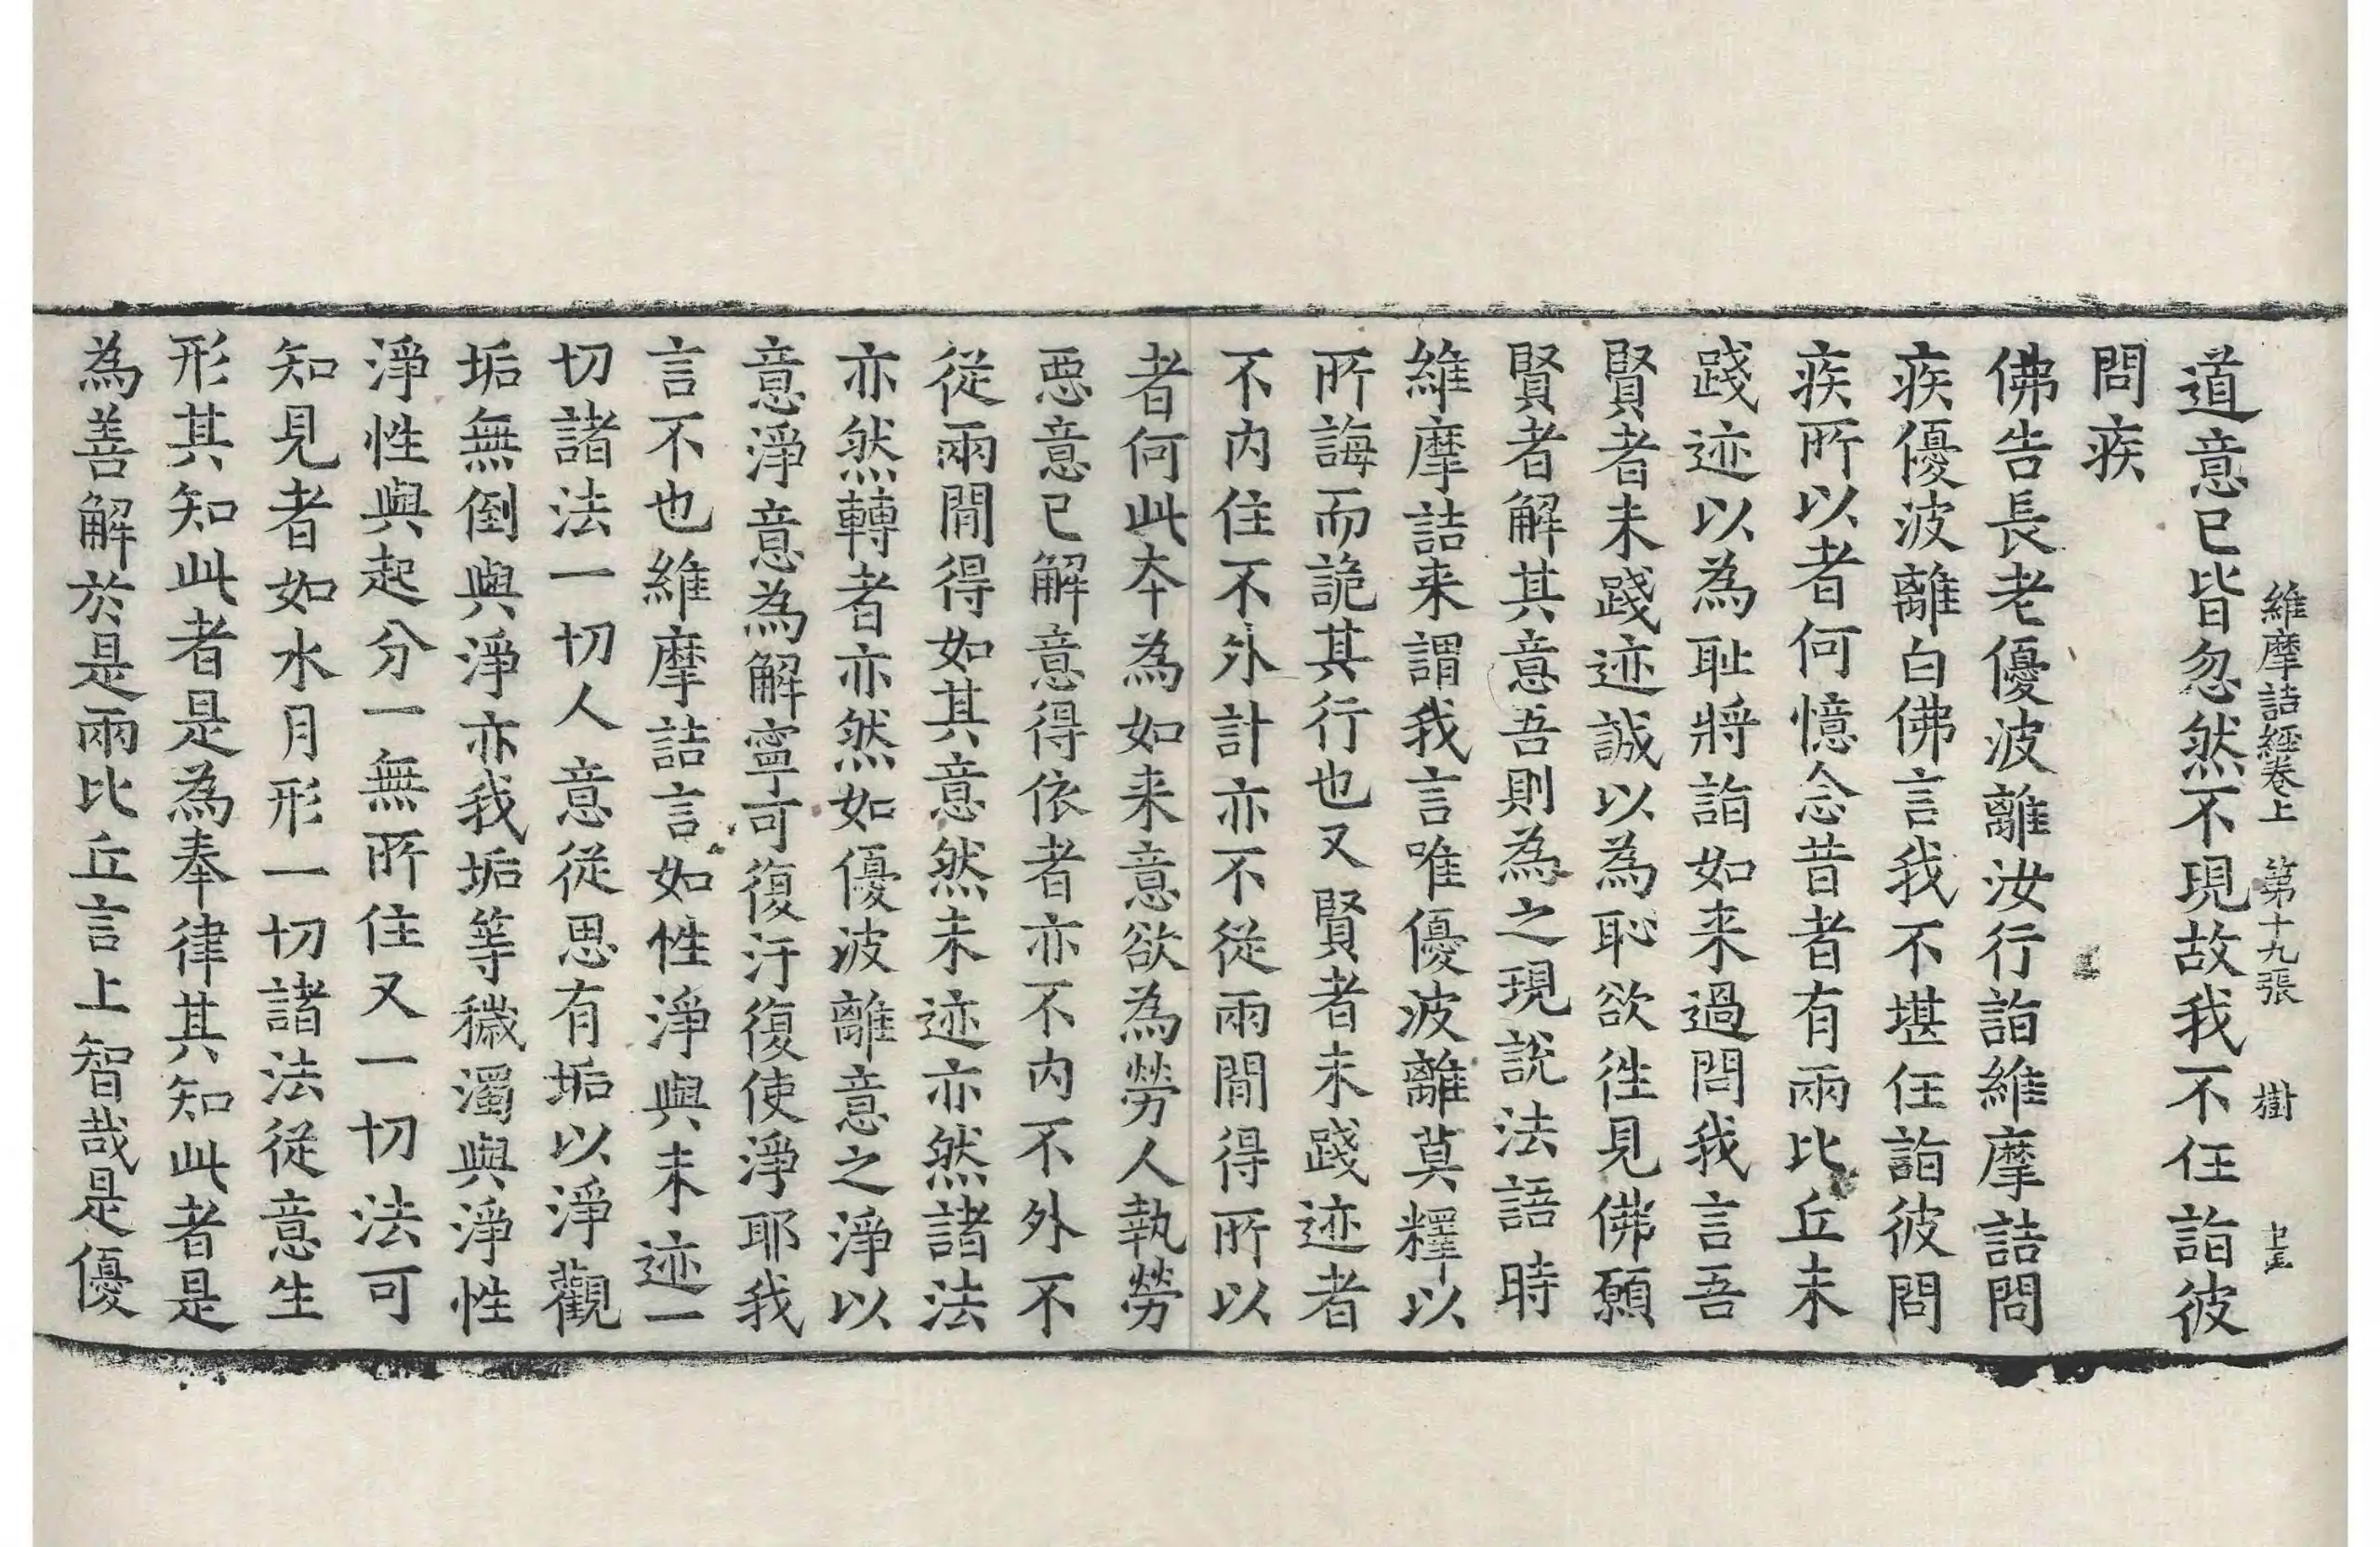 維摩詰經卷上 第十九張 樹
道意已皆忽然不現故我不任詣彼
問疾
佛告長老優波離汝行詣維摩詰問
疾優波離白佛言我不堪任詣彼問
疾所以者何憶念昔者有兩比丘未
踐迹以為耻將詣如来過問我言吾
賢者未踐迹誠以為恥欲徃見佛願
賢者解其意吾則為之現說法語時
維摩詰来謂我言唯優波離莫釋以
所誨而詭其行也又賢者未踐迹者
不内住不外計亦不從兩間得所以
者何此夲為如来意欲為勞人執勞
惡意已解意得依者亦不内不外不
從兩間得如其意然未迹亦然諸法
亦然轉者亦然如優波離意之淨以
意淨意為解寧可復汙復使淨耶我
言不也維摩詰言如性淨與未迹一
切諸法一切人意從思有垢以淨觀
垢無倒與淨亦我垢等穢濁與淨性
淨性與起分一無所住又一切法可
知見者如水月形一切諸法從意生
形其知此者是為奉律其知此者是
為善解於是兩比丘言上智哉是優